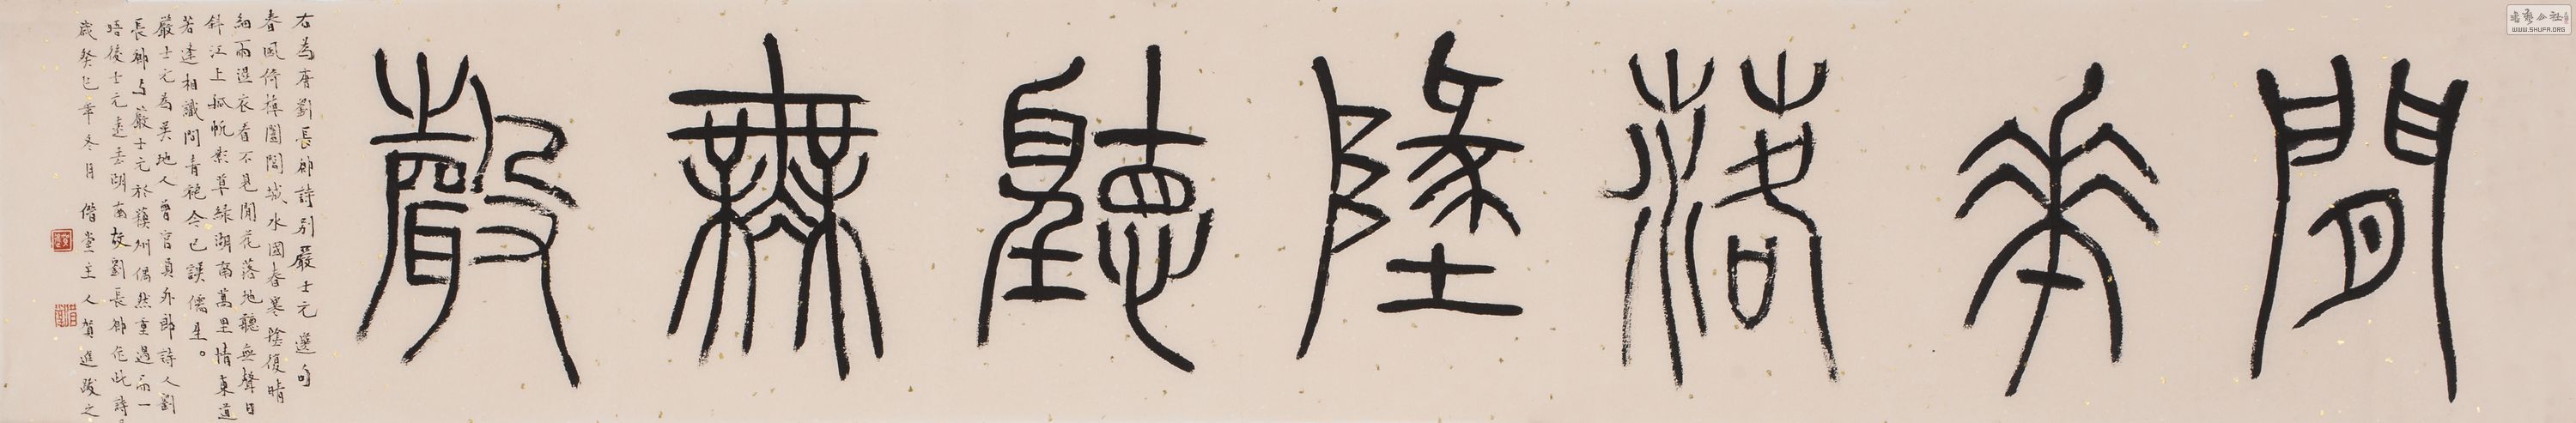 閒花落墬聽無聲
右為唐劉長卿詩別嚴士元選句
春風倚棹闔閭城水國春寒陰復晴
細雨濕衣看不見閒花落地聽無聲日
斜江上孤帆影草綠湖南萬里情東道
若逢相識問青袍今已誤儒生。
嚴士元為吳地人曾官員外郎詩人劉
長卿与嚴士元於蘓州偶然重過而一
晤後士元遠去湖南故劉長卿作此詩。
歲癸巳年冬月 偕堂主人賀進跋之
WWW.SHUFA.ORG